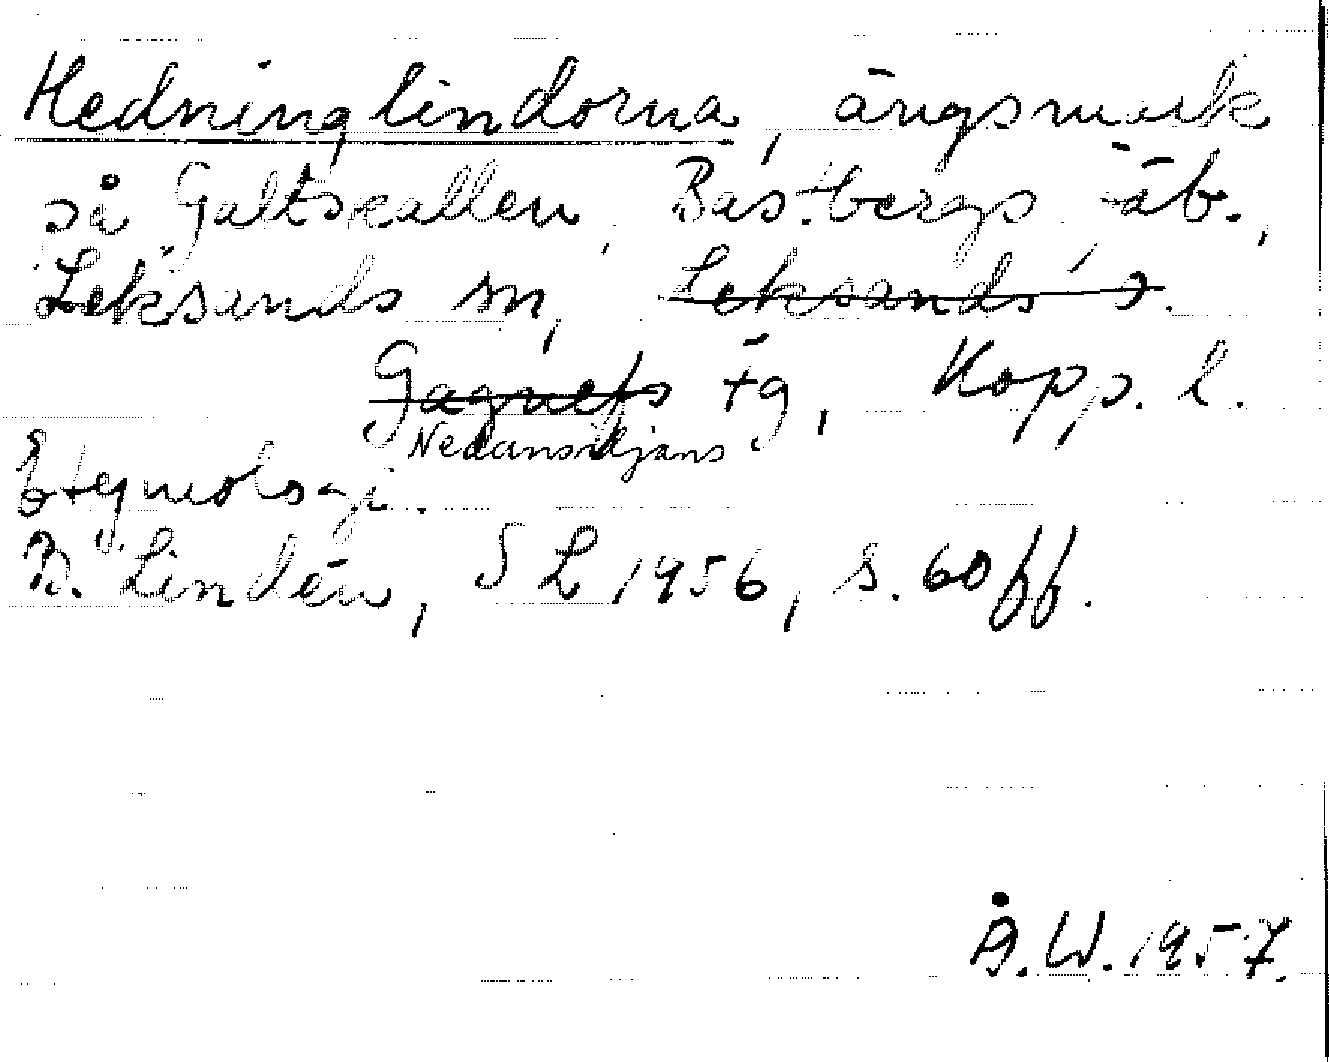 Hedninglindorna, ängsmark
på Galtskallen, Bastbergs äb.,
Leksands sn, Leksands o.
Gagnefs tg, Kopp. l.
Nedansiljans
Etymologi.
B. Lindén, SL 1956, s. 60 ff.
Å.W. 1957.